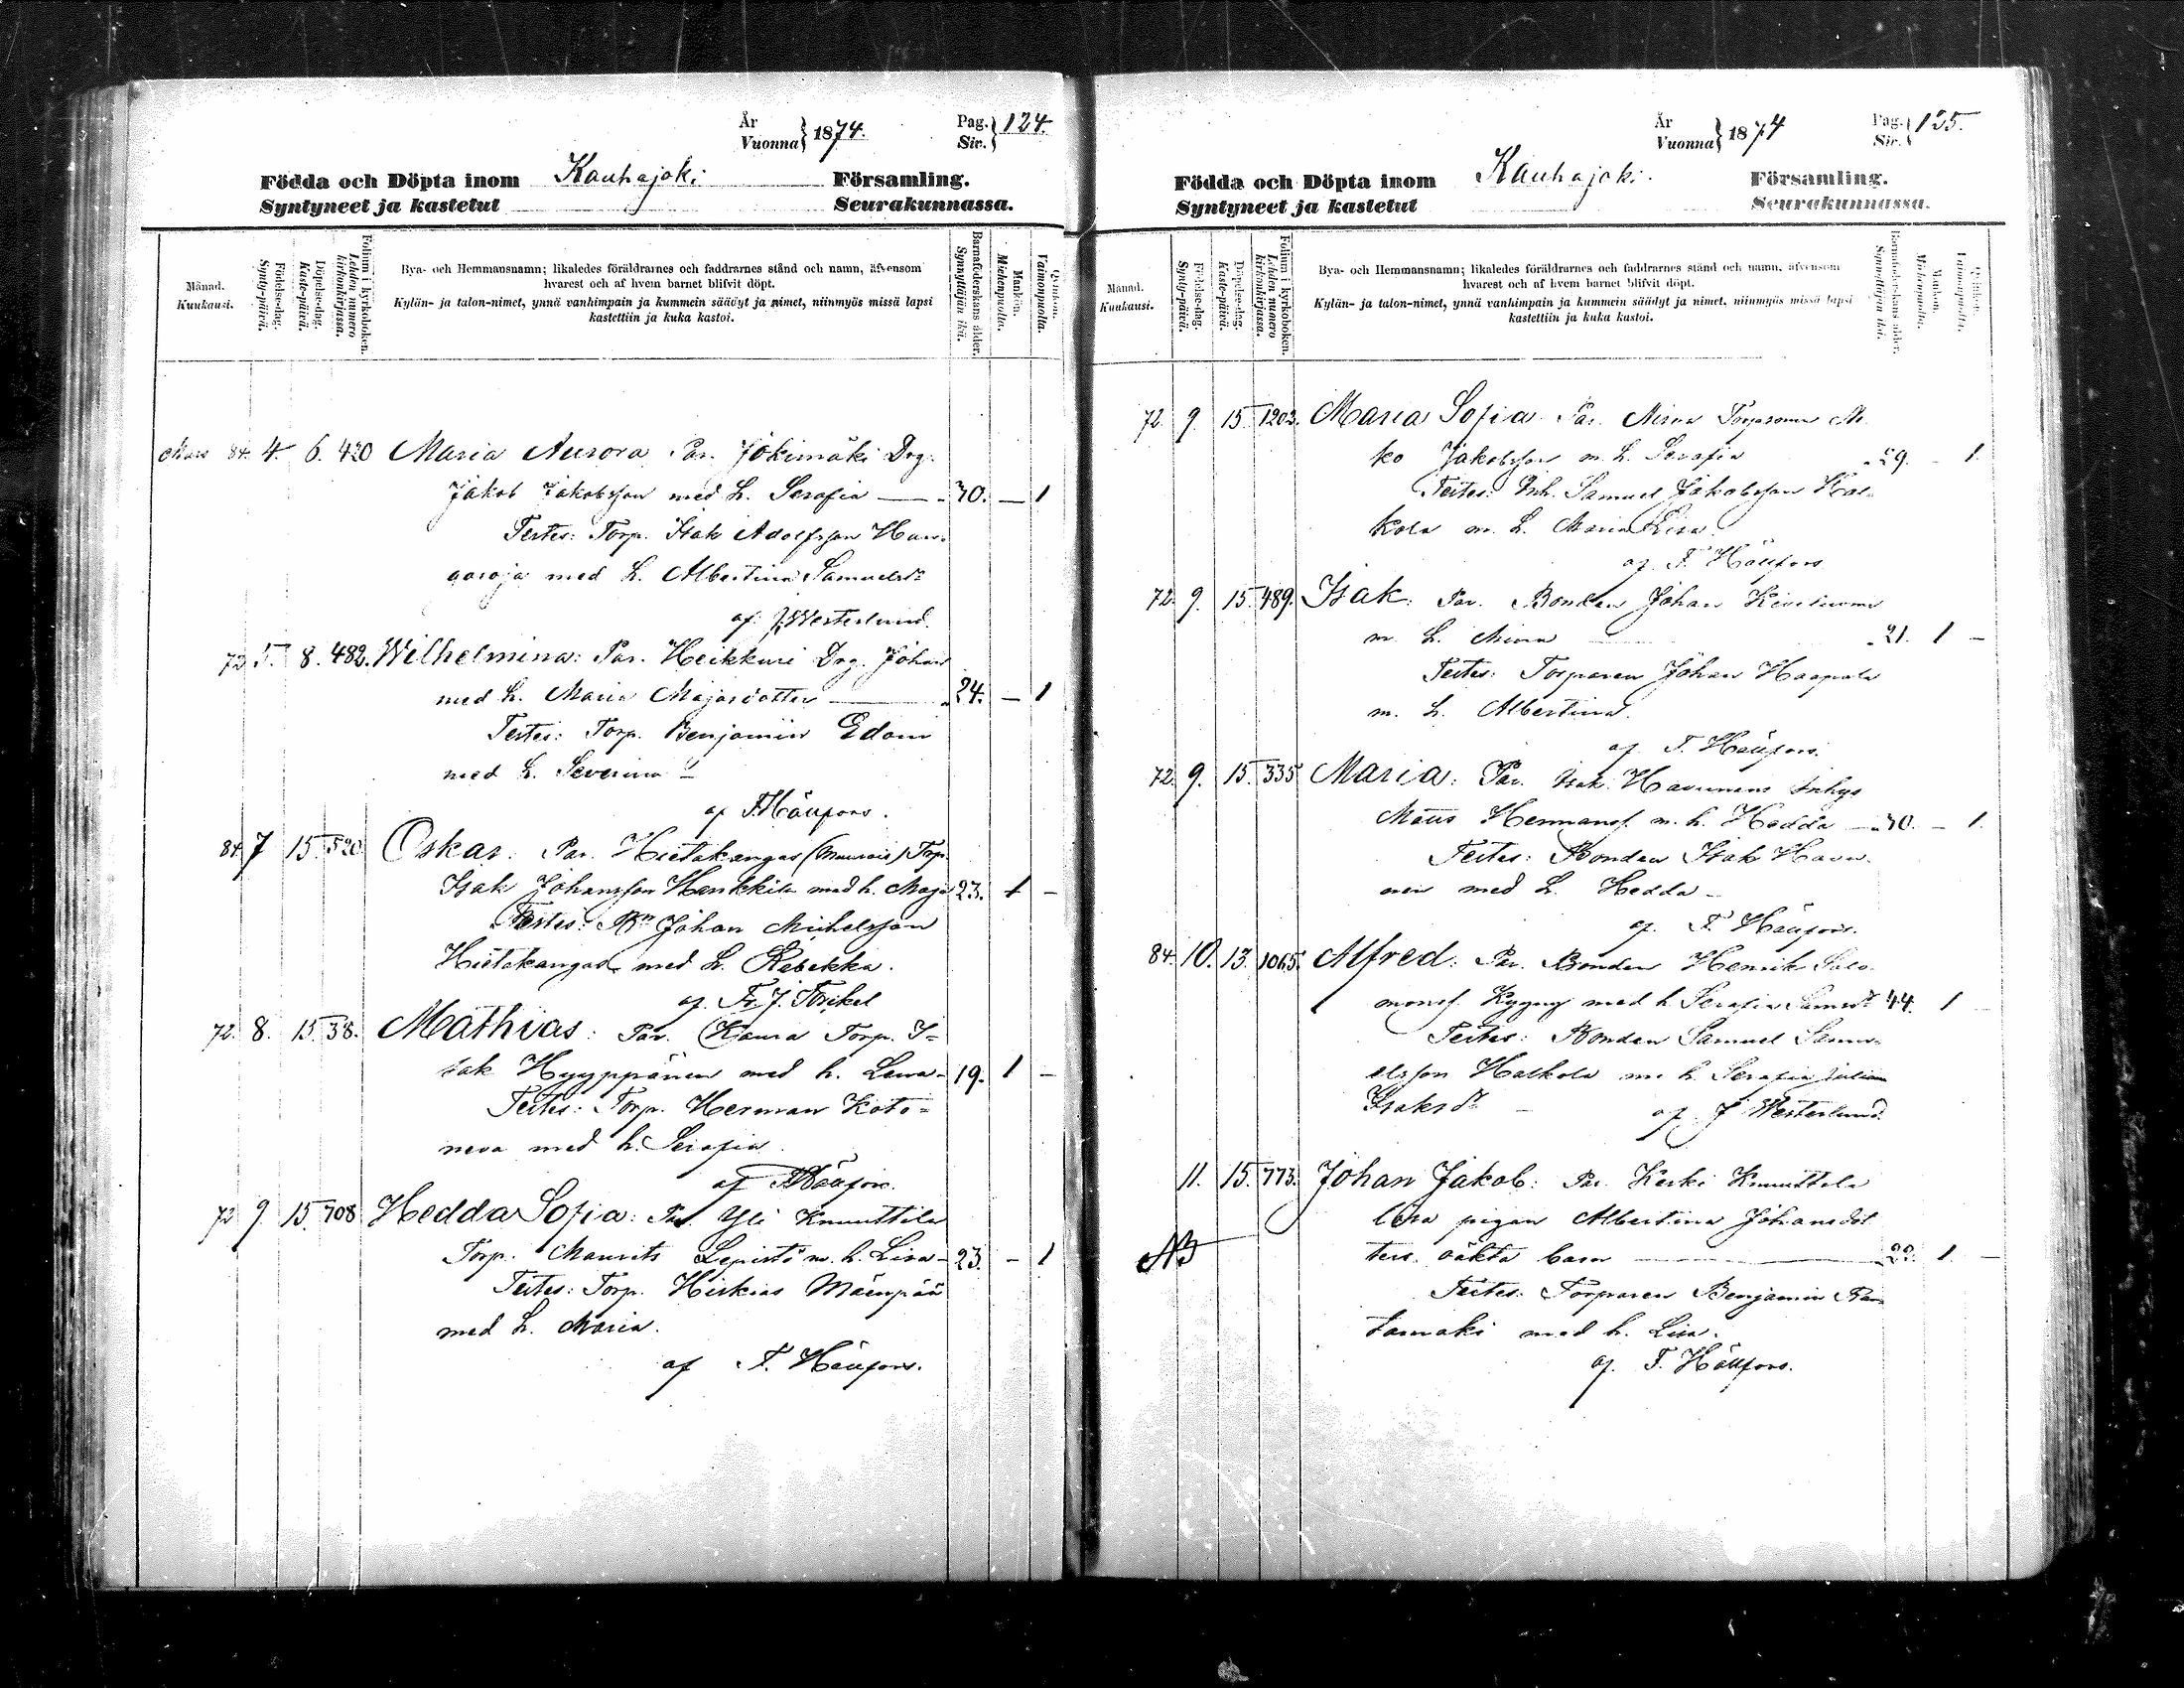 År
Vuonna } 1874.
Pag.
Sir. } 124.
Födda och Döpta inom Kauhajoki Församling.
Syntyneet ja kastetut Seurakunnassa.
Månad.
Kuukausi.
Födelse-dag.
Synty-päivä.
Döpelse-dag.
Kaste-päivä.
Folium i kyrkoboken.
Lehden numero kirkonkirjassa.
Bya- och Hemmansnamn; likaledes föräldrarnes och faddrarnes stånd och namn, äfvensom
hvarest och af hvem barnet blifvit döpt.
Kylän- ja talon-nimet, ynnä vanhimpain ja kummein säädyt ja nimet, niinmyös missä lapsi
kastettiin ja kuka kastoi.
Barnaföderskans ålder.
Synnyttäjän ikä.
Mankön.
Miehenpuolia.
Qvinkön.
Vaimonpuolia.
Mars 84. 4. 6. 420 Maria Aurora. Par. Jokimäki Drg.
Jakob Jakobsson med h. Serafia — 30. — 1
Testes: Torp. Isak Adolfsson
med h. Albertina Samuelsdr
af J. Westerlund.
72 5. 8. 482. Wilhelmina: Par. Heikkuri Drg. Johan
med h. Maria Majasdotter — 24. — 1
Testes: Torp. Benjamin
med h. Severina
af F. Häufors.
84. 7 15. 520 Oskar: Par. Hietakangas Torp.
Isak Johansson Hankkila med h. Maja 23. 1 —
Testes: Bn Johan Michelsson
Hietakangas med h. Rebekka.
af Fr. J. Forkel
72. 8. 15. 38. Mathias: Par. Kaura Torp. I=
sak Hyyppänen med h. Lena — 19. 1 —
Testes: Torp. Herman Koto=
neva med h. Serafia.
af F. Häufors.
72 9. 15. 708 Hedda Sofia: Par. Yli Knuuttila
Torp. Maurits Lepistö m. h. Lisa — 23. — 1
Testes: Torp. Hiskias Mäenpää
med h. Maria.
af F. Häufors.
År
Vuonna } 1874
Pag.
Sir. } 125.
Födda och Döpta inom Kauhajoki. Församling.
Syntyneet ja kastetut Seurakunnassa.
Månad.
Kuukausi.
Födelse-dag.
Synty-päivä.
Döpelse-dag.
Kaste-päivä.
Folium i kyrkoboken.
Lehden numero kirkonkirjassa.
Bya- och Hemmansnamn; likaledes föräldrarnes och faddrarnes stånd och namn, äfvensom
hvarest och af hvem barnet blifvit döpt.
Kylän- ja talon-nimet, ynnä vanhimpain ja kummein säädyt ja nimet, niinmyös missä lapsi
kastettiin ja kuka kastoi.
Barnaföderskans ålder.
Synnyttäjän ikä.
Mankön.
Miehenpuolia.
Qvinkön.
Vaimonpuolia.
72. 9. 15. 1203. Maria Sofia. Par.
ko Jakobsson m. h. Serafia 29. — 1.
Testes: Inh. Samuel Jakobsson Hal=
kola m. h. Maria Lisa.
af F. Häufors
72. 9. 15. 489. Isak: Par. Bonden Johan
m. h. Mina 21. 1 —
Testes: Torparen Johan Haapala
m. h. Albertina.
af F. Häufors.
72. 9. 15. 335 Maria: Par. Isak Havunens Inhys
Matts Hermansf. m. h. Hedda — 30. — 1.
Testes: Bonden Isak Havu=
nen med h. Hedda —
af F. Häufors.
84. 10. 13. 1065. Alfred: Par. Bonden Henrik Salo=
monsf. Kyyny med h. Serafia Samsdr 44. 1 —
Testes: Bonden Samuel Samu=
elsson Halkola m. h. Serafia
Isaksdr — af J Westerlund.
11. 15. 773. Johan Jakob: Par. Keski Knuuttila
lösa pigan Albertina Johansdot
NB ters oäkta barn — 23. 1. —
Testes: Torparen Benjamin
tamäki med h. Lisa.
af F. Häufors.